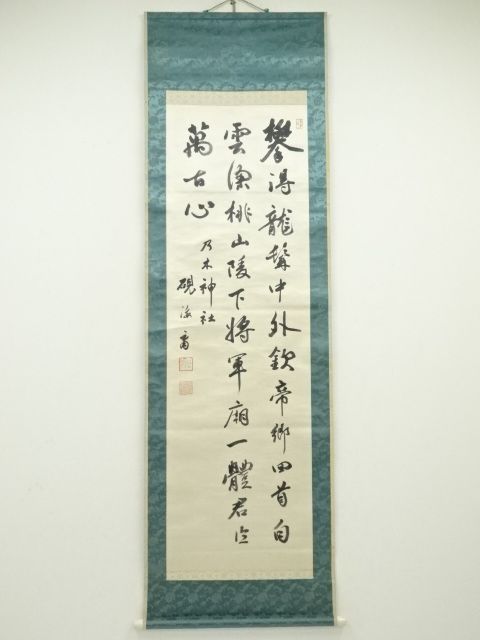 攀得龍髯中外欽帝郷回首白
雲深桃山陵下将軍廟一體君臣
萬古心
乃木神社
硯海斎